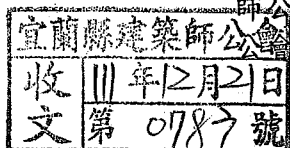 宜蘭縣建築師公會
收文
111年12月21日
第0787號